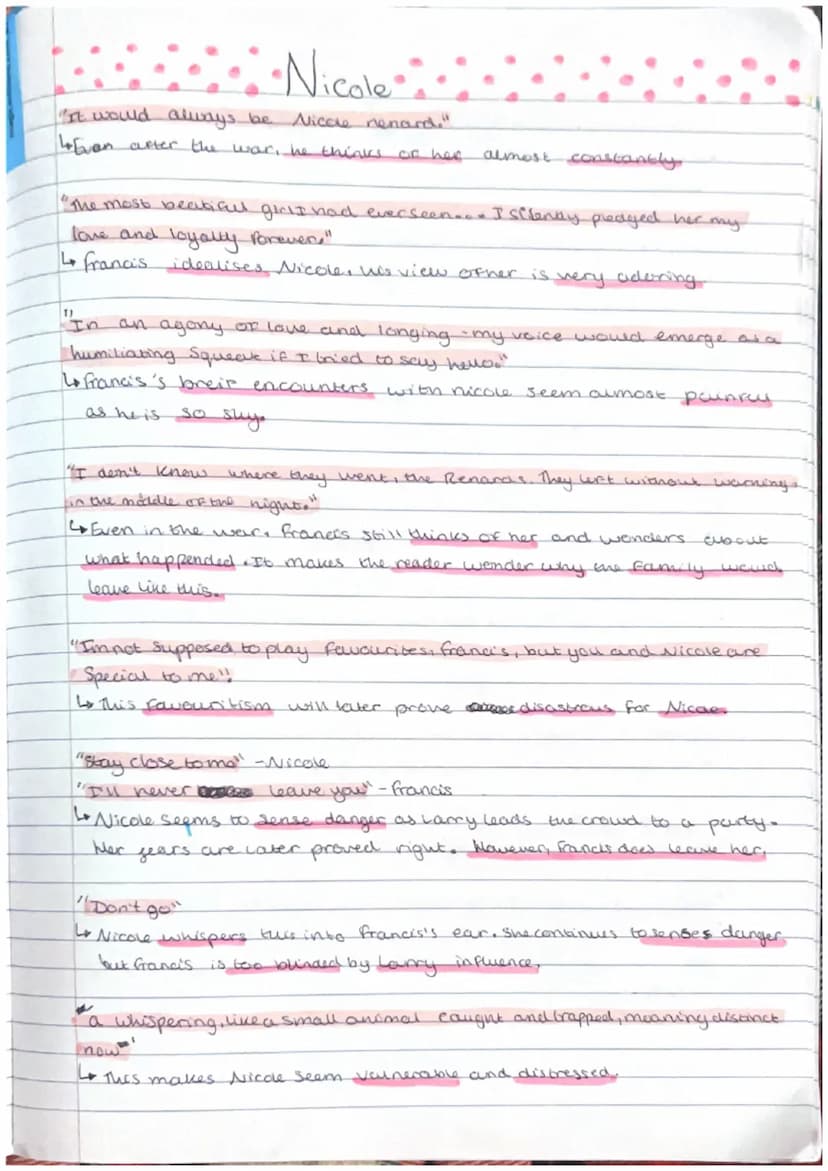 Nicole
"It would always be Nicole renard."
↳ Even after the war, he thinks of her almost constantly.
"The most beautiful girl I had ever seen.... I silently pledged her my
love and loyalty forever."
↳ francis idealises Nicole, his view of her is very adoring
"In an agony of love and longing - my voice would emerge as a
humiliating Squeak if I tried to say hello."
↳ francis's breif encounters with nicole seem almost painful
as he is so shy.
"I don't know where they went, the Renards. They left without warning,
in the middle of the night."
↳ Even in the war, francis still thinks of her and wonders about
what happended. It makes the reader wonder why the family would
leave like this.
"I'm not supposed to play favourites, francis, but you and Nicole are
Special to me"
↳ This favouritism will later prove disastrous for Nicole.
"Stay close to me" - Nicole
"I'll never leave you" - francis
↳ Nicole seems to sense danger as Larry leads the crowd to a party.
Her fears are later proved right. However, francis does leave her.
"Don't go"
↳ Nicole whispers this into francis's ear. She continues to senses danger
but francis is too blinded by Larry influence.
"a whispering, like a small animal caught and trapped, moaning distinct
now"
↳ This makes Nicole seem vulnerable and distressed.